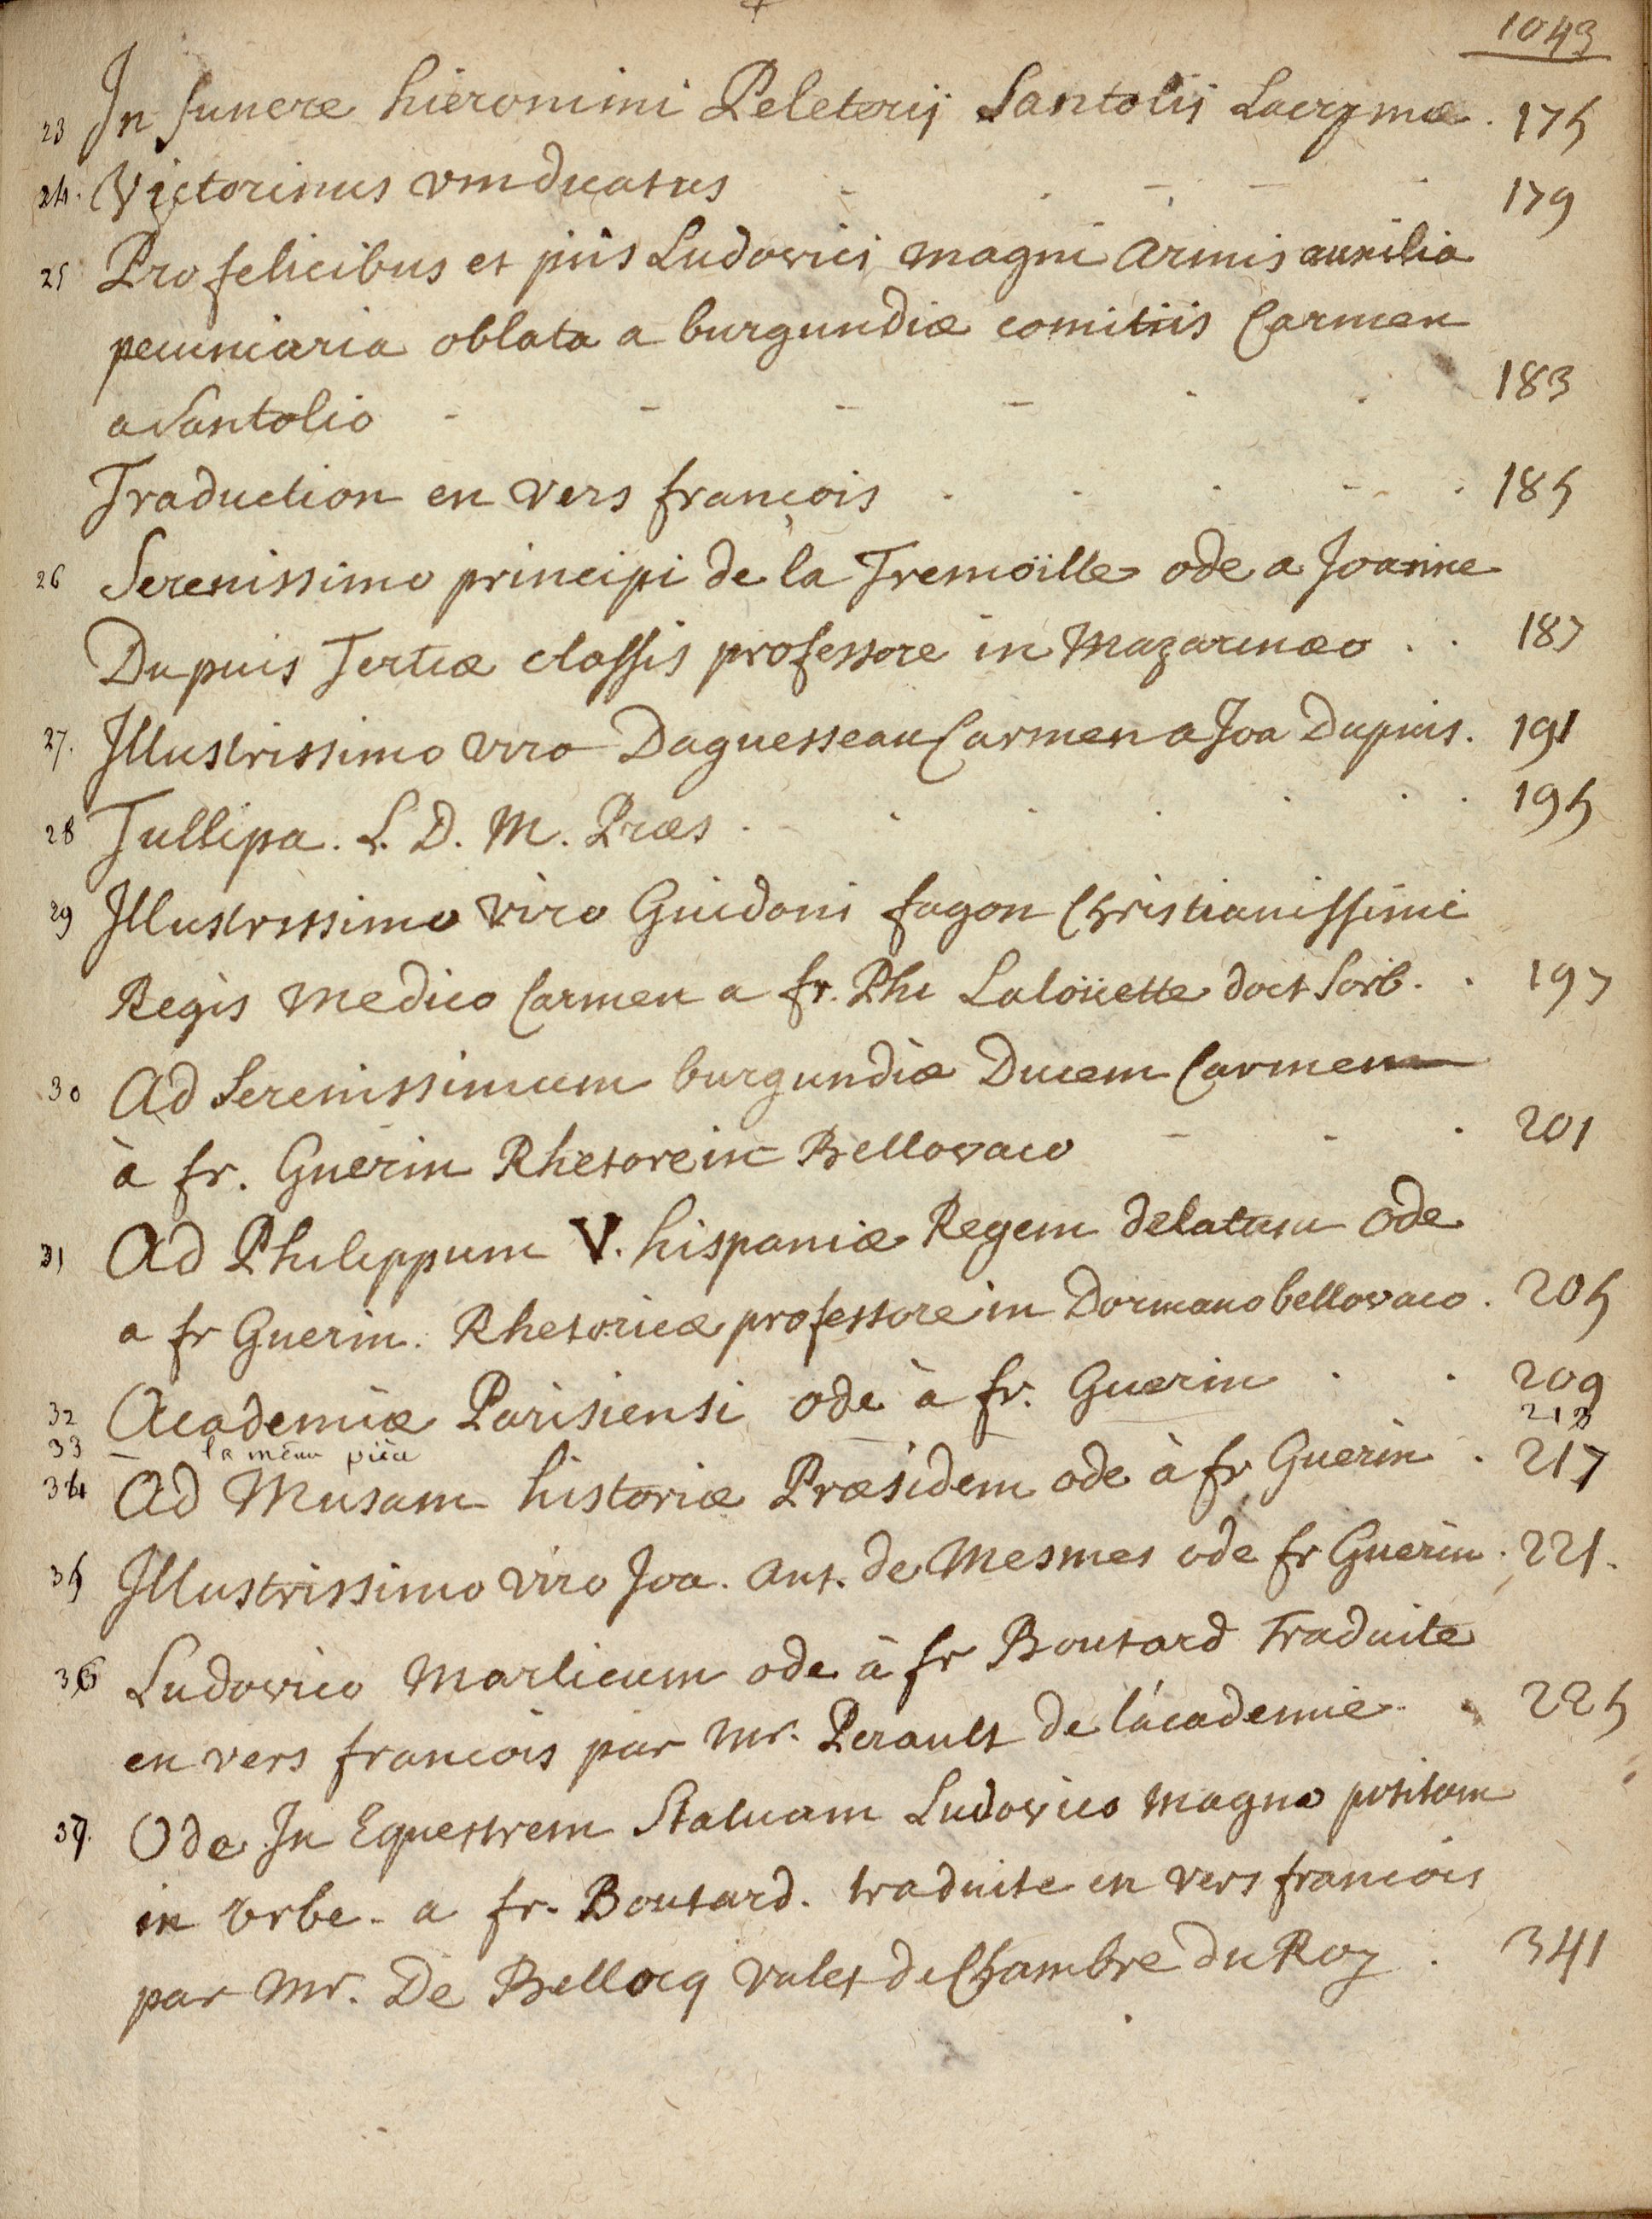 1043
23 In funere hieronimi Peleterij Santolij Lacrymæ. 175
24. Victorinus vindicatus - . - . - . 179
25 Pro felicibus et piis Ludovici magni armis auxilia
pecuniaria oblata a burgundiæ comitiis Carmen
a Santolio - - - - . . 183
Traduction en vers françois . . . - . 185
26 Serenissimo principi de la Tremoïlle ode a Joanne
Dupuis Tertiæ classis professore in Mazarinæo . . 187
27. Illustrissimo viro Daguesseau Carmen a Joa Dupuis. 191
28 Tullipa. L. D. M. Præs . . . . . . 195
29 Illustrissimo viro Guidoni fagon Christianissimi
Regis medico Carmen a fr. Phi Laloüette doct Sorb. . 197
30 Ad Serenissimum burgundiæ Ducem Carmen
à fr. Guerin Rhetore in Bellovaco - - . 201
31 Ad Philippum V. hispaniæ Regem delatum ode
a fr Guerin. Rhetoricæ professore in Dormano bellovaco. 205
32 Academiæ Parisiensi ode à fr. Guerin . . 209
33 — la même pièce 213
34 Ad Musam historiæ Præsidem ode à fr Guerin . 217
35 Illustrissimo viro Joa. ant. de Mesmes ode fr Guerin. 221.
36 Ludovico Marlicum ode à fr Boutard Traduite
en vers francois par Mr. Perault de l'academie . 225
37. Ode In Equestrem Statuam Ludovico magno positam
in urbe - a fr. Boutard. traduite en vers francois
par Mr. De Bellocq valet de Chambre du Roy . 341